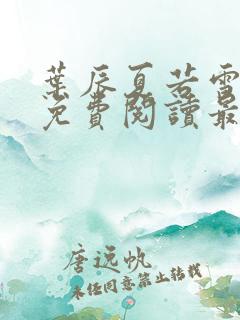 葉辰夏若雪
免費閱讀最
唐远帆
未经同意禁止转载